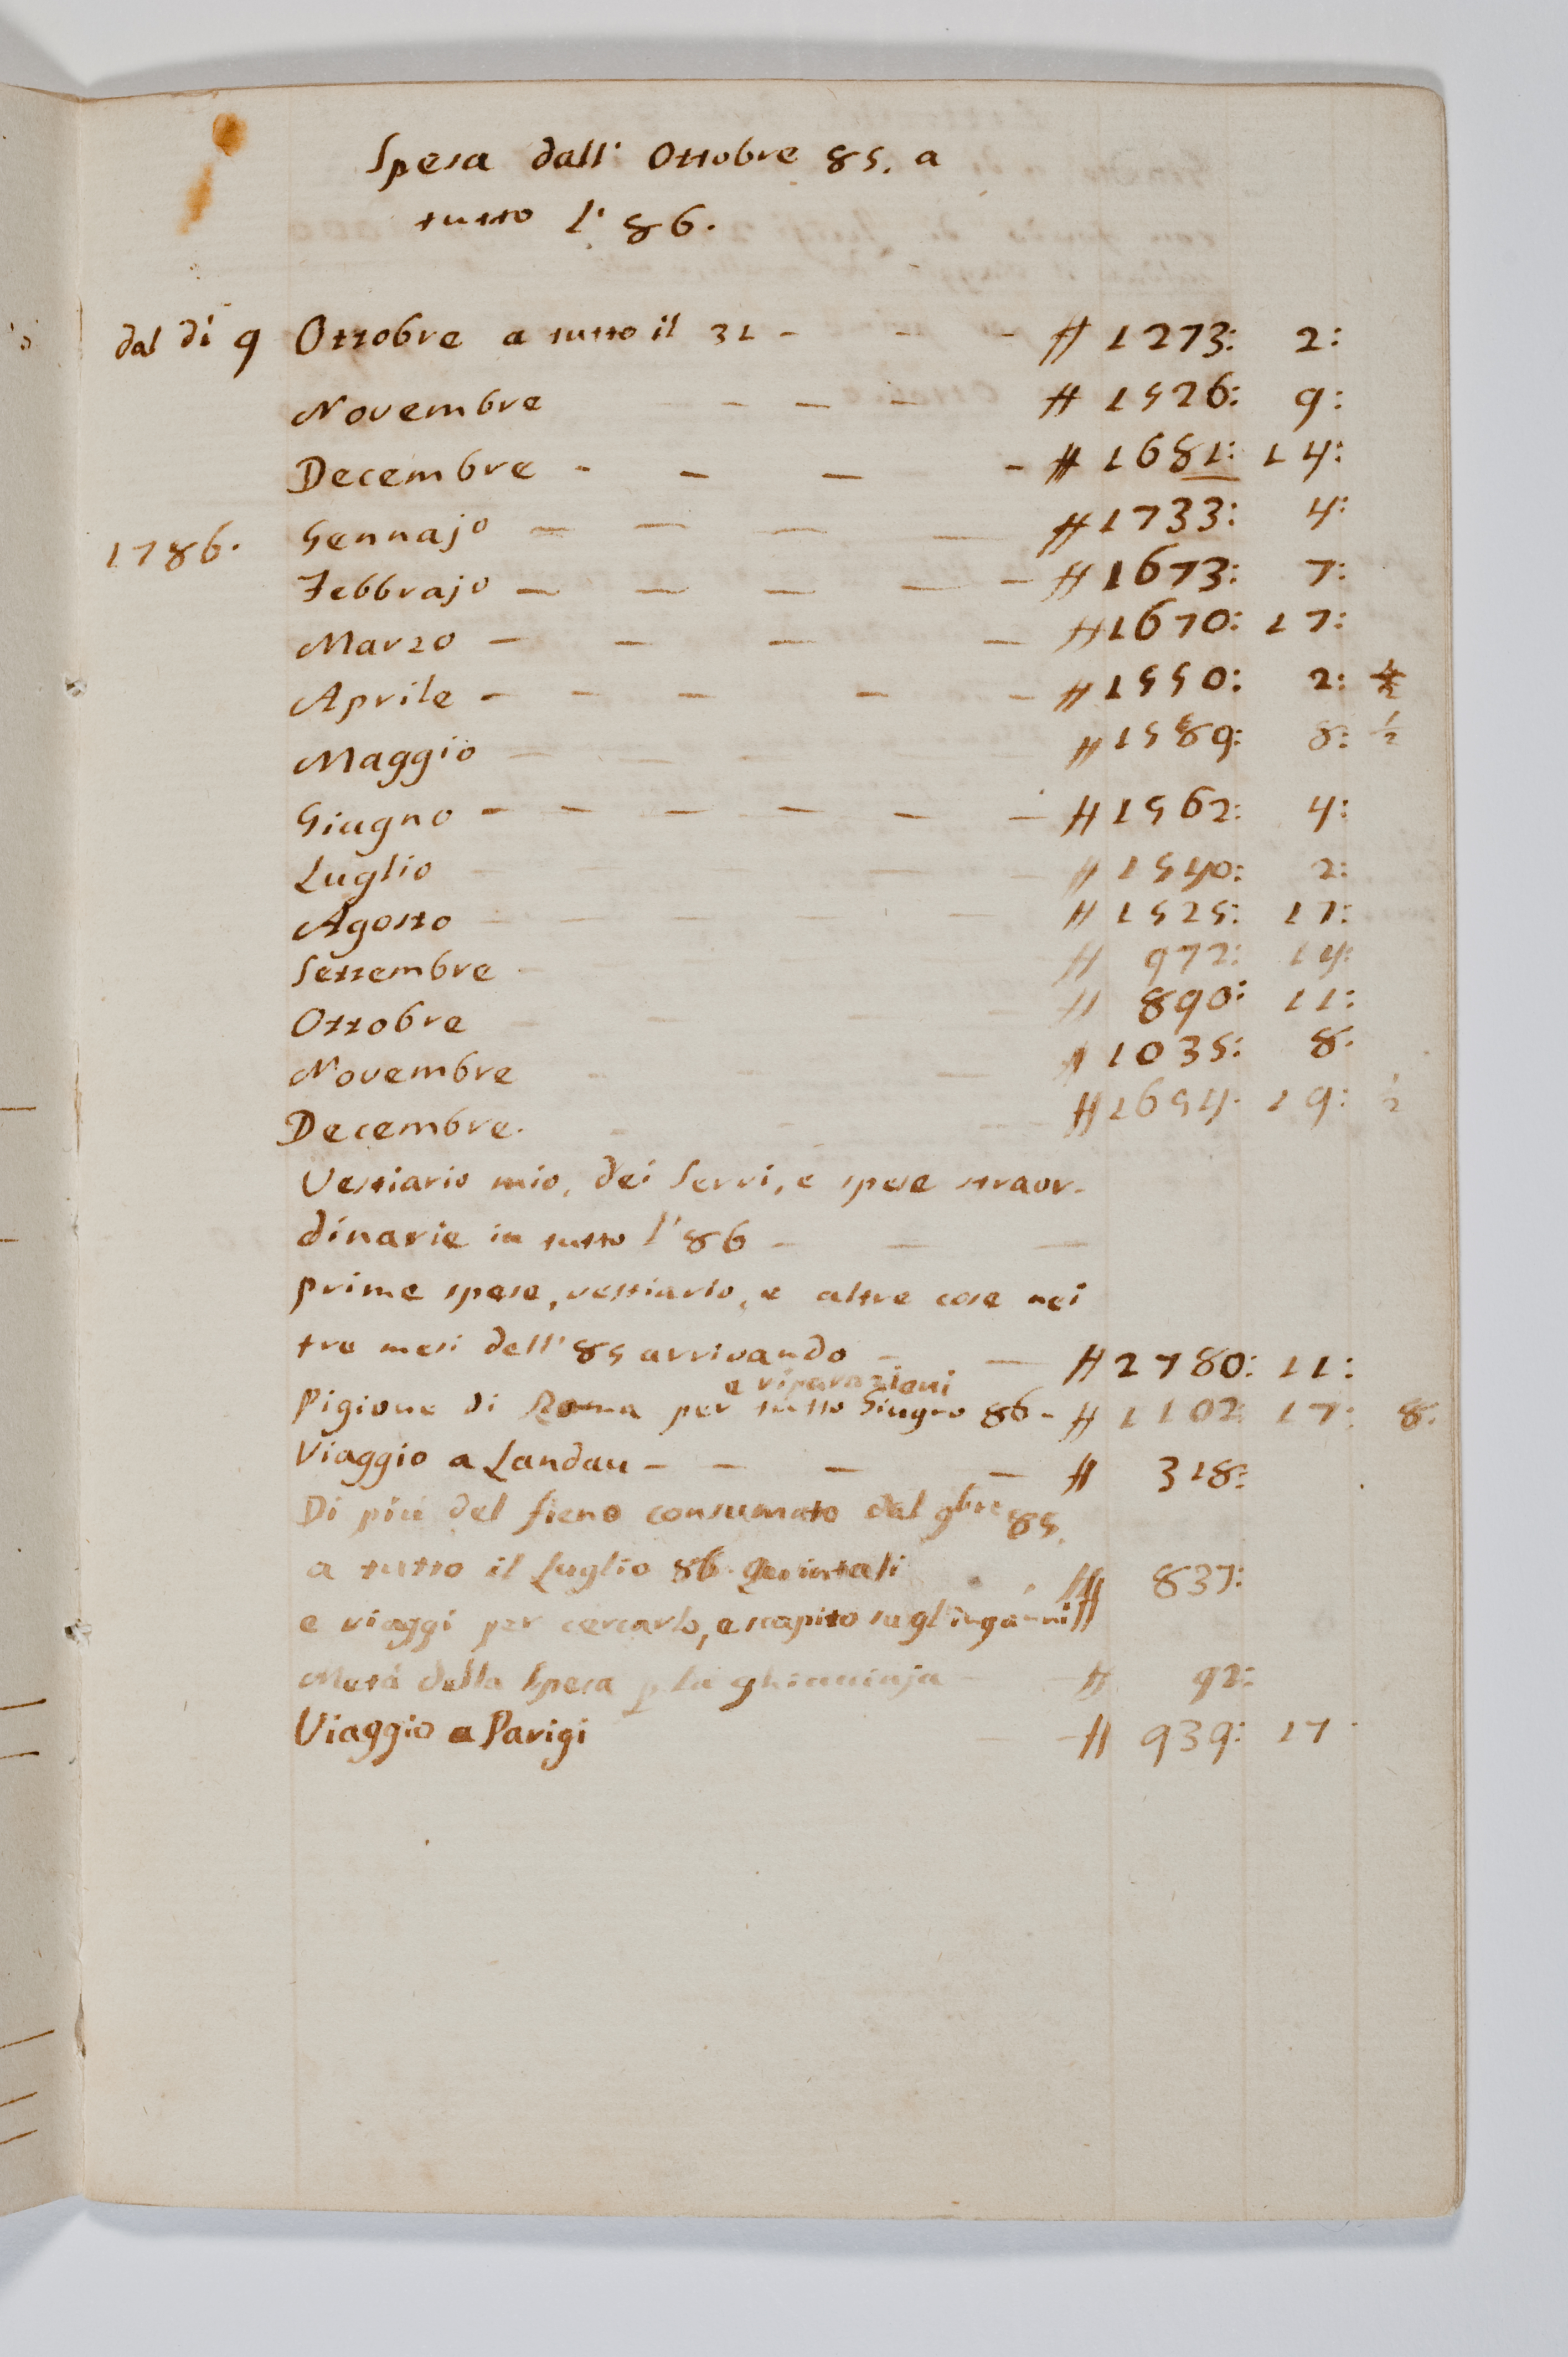 Spesa dall' Ottobre 85. a
tutto l' 86.
dal dí 9 Ottobre a tutto il 31 - - - # 1273: 2:
Novembre - - - # 1526: 9:
Decembre - - - - # 1681: 14:
1786. Gennajo - - - - # 1733: 4:
Febbrajo - - - - - # 1673: 7:
Marzo - - - - # 1670: 17:
Aprile - - - - - # 1550: 2:
Maggio - - - # 1589: 8: 1/2
Giugno - - - - - - # 1562: 4:
Luglio - - - # 1540: 2:
Agosto - - - - - # 1525: 17:
Settembre - # 972: 14:
Ottobre - - - - # 890: 11:
Novembre - - - # 1035: 8.
Decembre. - - - # 1654. 19: 1/2
Vestiario mio, dei Servi, e spese straor-
dinarie in tutto l' 86 - - -
prime spese, vestiario, e altre cose nei
tre mesi dell' 85 arrivando - - # 2780: 11:
e riparazioni
Pigione di per tutto Giugno 86 - # 1102: 17: 8.
Viaggio a Landau - - - - # 318:
Di piú del fieno consumato dal 9bre 85.
a tutto il Luglio 86. quintali # 837:
e viaggi per cercarlo, e scapito su gl'ingánni #
Metá della Spesa p la # 92:
Viaggio a Parigi - # 939: 17.